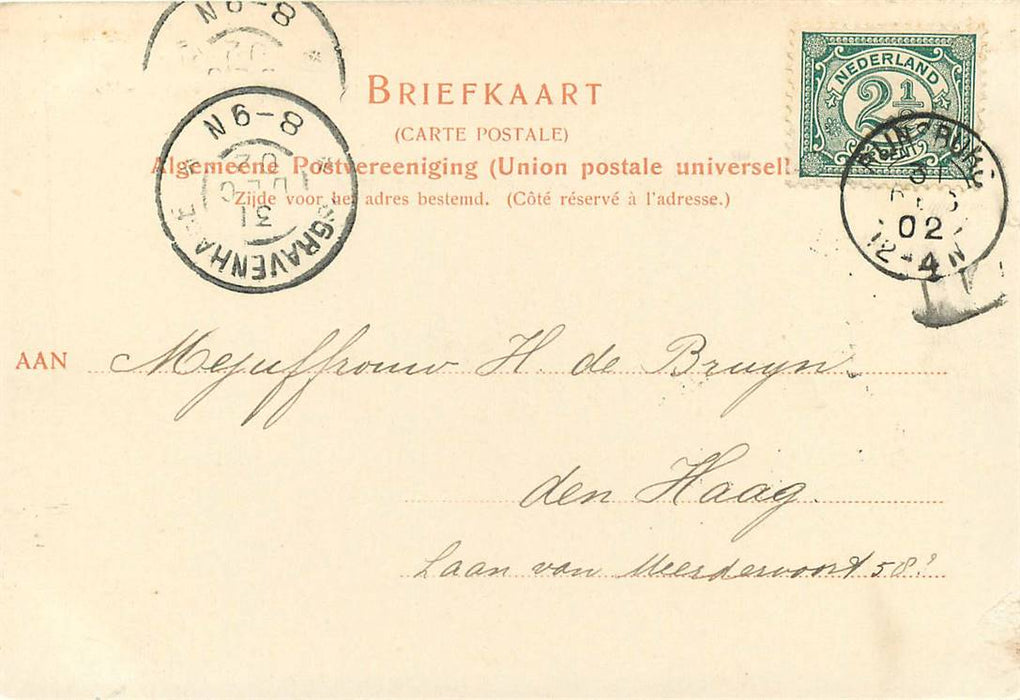 N 6-8
02
NEDERLAND
2 1/2
CENT
BRIEFKAART
(CARTE POSTALE)
Algemeene Postvereeniging (Union postale universell
Zijde voor het adres bestemd. (Côté réservé à l'adresse.)
N 6-8
02
31
GRAVENHA
02
12-4N
AAN Mejuffrouw H. de Bruyn
den Haag.
Laan van Meerdervoort 58